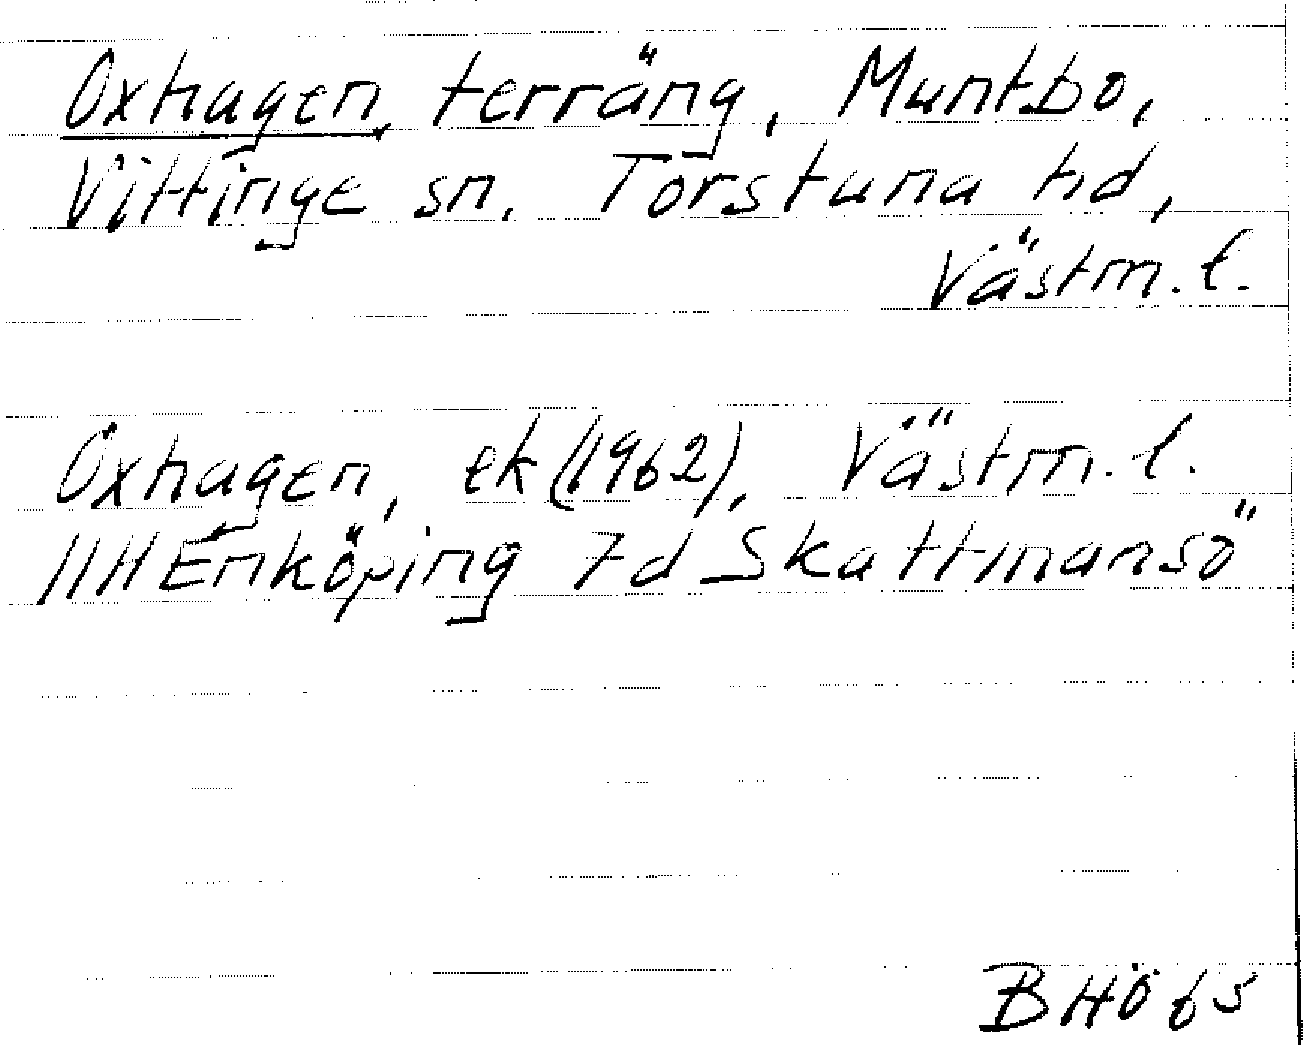 Oxhagen, terräng, Muntbo,
Vittinge sn. Torstuna hd,
Västm. l.
Oxhagen, ek (1962), Västm. l.
11H Enköping 7d Skattmansö
BHÖ 65